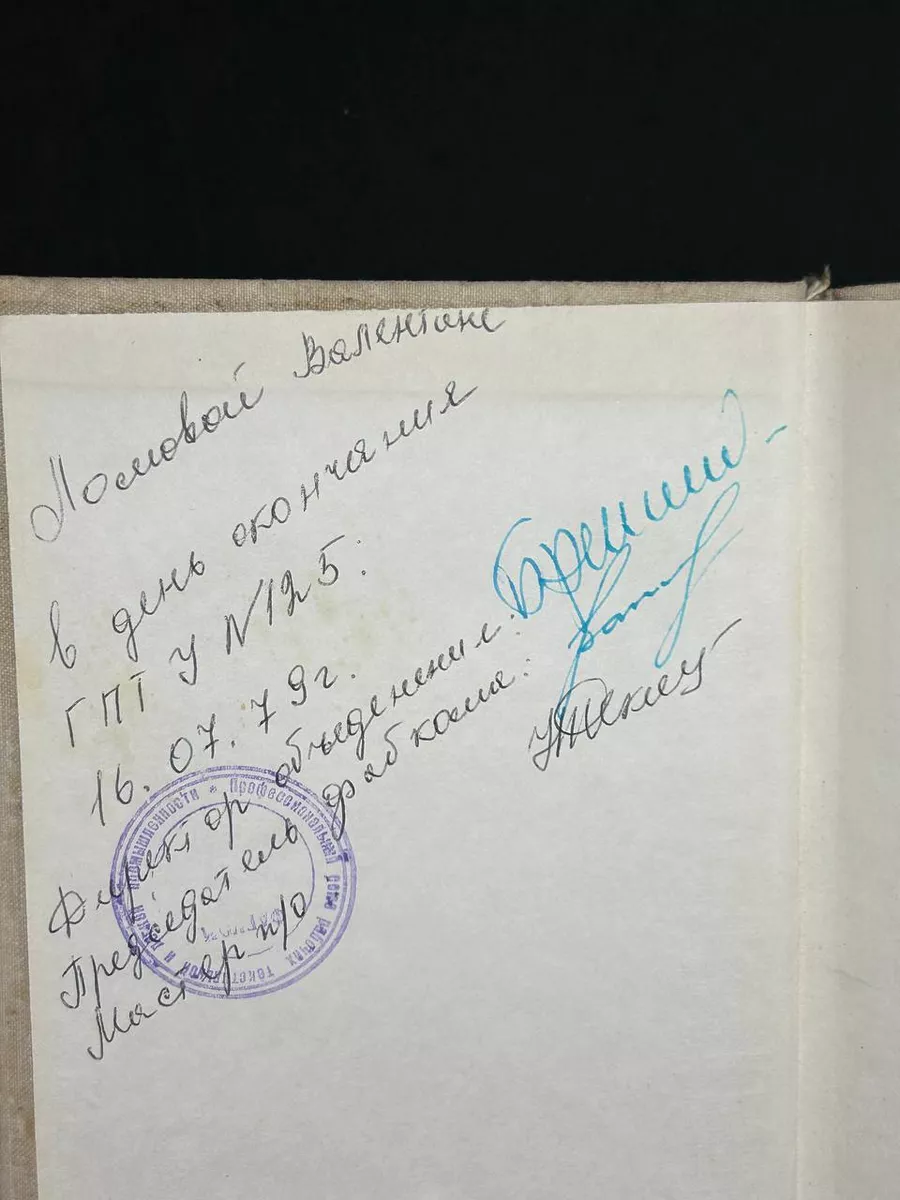 Ломовой Валентине
в день окончания
ГПТУ №125.
16.07.79г.
Директор объеденения:
Председатель фабкома:
Мастер п/о
Профессиональный союз рабочих текстильной и легкой промышленности